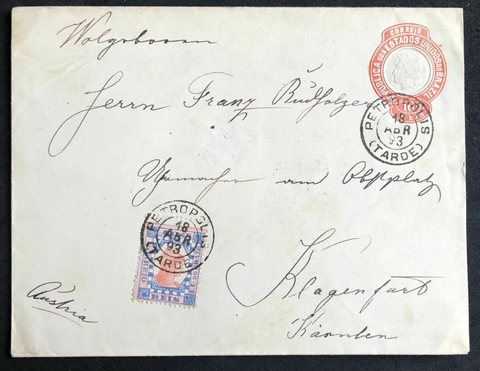 CORREIO
REPUBLICA DOS ESTADOS UNIDOS DO BRAZIL
Wolgeboren
Herrn Franz Rudholzer
PETROPOLIS
18
ABR
93
(TARDE)
Uhrmacher am Obstplatz
PETROPOLIS
18
ABR
93
(TARDE)
REIS
Klagenfurt
Austria
Kärnten